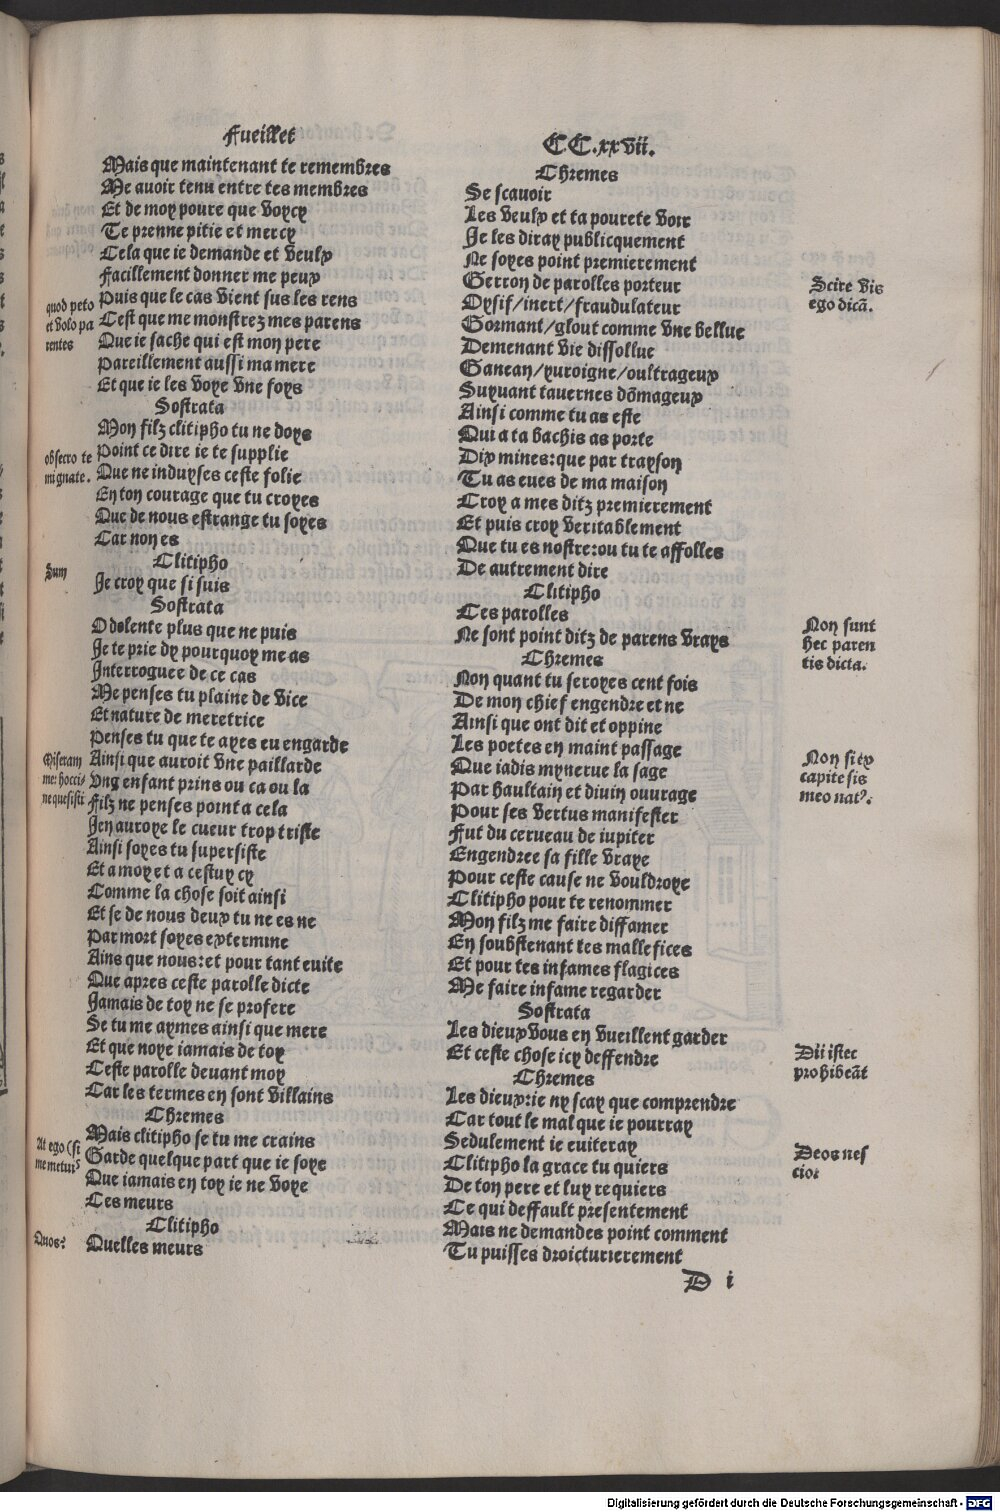 Fueillet
CC.xxvii.
Mais que maintenant te remembres
Me auoir tenu entre tes membres
Et de moy poure que voycy
Te prenne pitie et mercy
Cela que ie demande et veulx
Facillement donner me peux
Puis que le cas vient sus les rens
Cest que me monstrez mes parens
Que ie sache qui est mon pere
Pareillement aussi ma mere
Et que ie les voye vne foys
Sostrata
Mon filz clitipho tu ne doys
Point ce dire ie te supplie
Que ne induyses ceste folie
En ton courage que tu croyes
Que de nous estrange tu soyes
Car non es
Clitipho
Je croy que si suis
Sostrata
O dolente plus que ne puis
Je te prie dy pourquoy me as
Interroguee de ce cas
Me penses tu plaine de vice
Et nature de meretrice
Penses tu que te ayes eu engarde
Ainsi que auroit vne paillarde
Vng enfant prins ou ca ou la
Filz ne penses point a cela
Jen auroye le cueur trop triste
Ainsi soyes tu supersiste
Et a moy et a cestuy cy
Comme la chose soit ainsi
Et se de nous deux tu ne es ne
Par mort soyes extermine
Ains que nous: et pour tant euite
Que apres ceste parolle dicte
Jamais de toy ne se profere
Se tu me aymes ainsi que mere
Et que noye iamais de toy
Ceste parolle deuant moy
Car les termes en sont villains
Chremes
Mais clitipho se tu me crains
Garde quelque part que ie soye
Que iamais en toy ie ne voye
Ces meurs
Clitipho
Quelles meurs
quod peto
et volo pa
rentes
obsecro te
mi gnate.
Sum
Miseram
me: hocci-
ne quesisti
At ego (si
me metuiꝰ
Quos?
Chremes
Se scauoir
Les veulx et ta pourete voir
Je les diray publicquement
Ne soyes point premierement
Gerron de parolles porteur
Oysif/inert/fraudulateur
Gormant/glout comme vne bellue
Demenant vie dissollue
Ganean/yuroigne/oultrageux
Suyuant tauernes dõmageux
Ainsi comme tu as este
Qui a ta bachis as porte
Dix mines: que par trayson
Tu as eues de ma maison
Croy a mes ditz premierement
Et puis croy veritablement
Que tu es nostre: ou tu te affolles
De autrement dire
Clitipho
Ces parolles
Ne sont point ditz de parens vrays
Chremes
Non quant tu seroyes cent fois
De mon chief engendre et ne
Ainsi que ont dit et oppine
Les poetes en maint passage
Que iadis mynerue la sage
Par haultain et diuin ouurage
Pour ses vertus manifester
Fut du cerueau de iupiter
Engendree sa fille vraye
Pour ceste cause ne vouldroye
Clitipho pour te renommer
Mon filz me faire diffamer
En soubstenant tes mallefices
Et pour tes infames flagices
Me faire infame regarder
Sostrata
Les dieux vous en vueillent garder
Et ceste chose icy deffendre
Chremes
Les dieux: ie ny scay que comprendre
Car tout le mal que ie pourray
Sedulement ie euiteray
Clitipho la grace tu quiers
De ton pere et luy requiers
Ce qui deffault presentement
Mais ne demandes point comment
Tu puisses droicturierement
D i
Scire vis
ego dicã.
Non sunt
hec paren
tis dicta.
Non si ex
capite sis
meo natꝰ.
Dii istec
prohibeãt
Deos nes
cio:
Digitalisierung gefördert durch die Deutsche Forschungsgemeinschaft - DFG